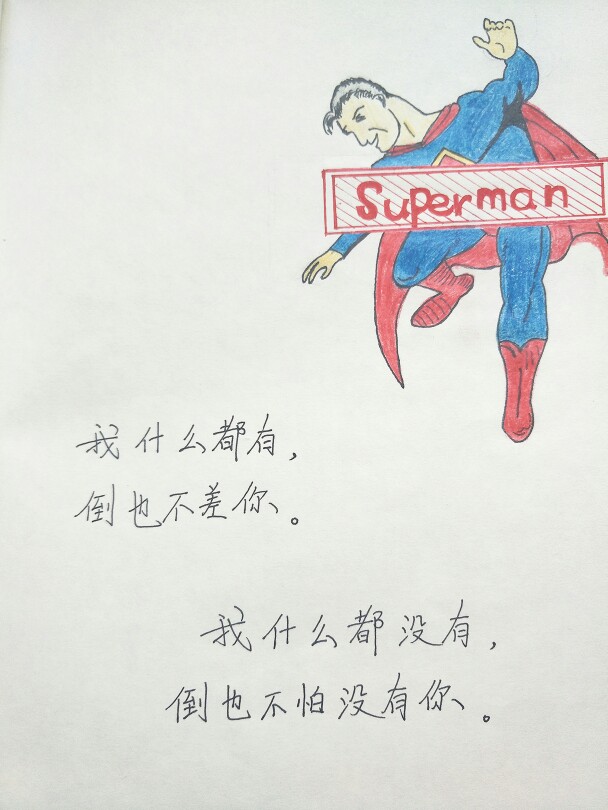 Superman
我什么都有，
倒也不差你。
我什么都没有，
倒也不怕没有你。